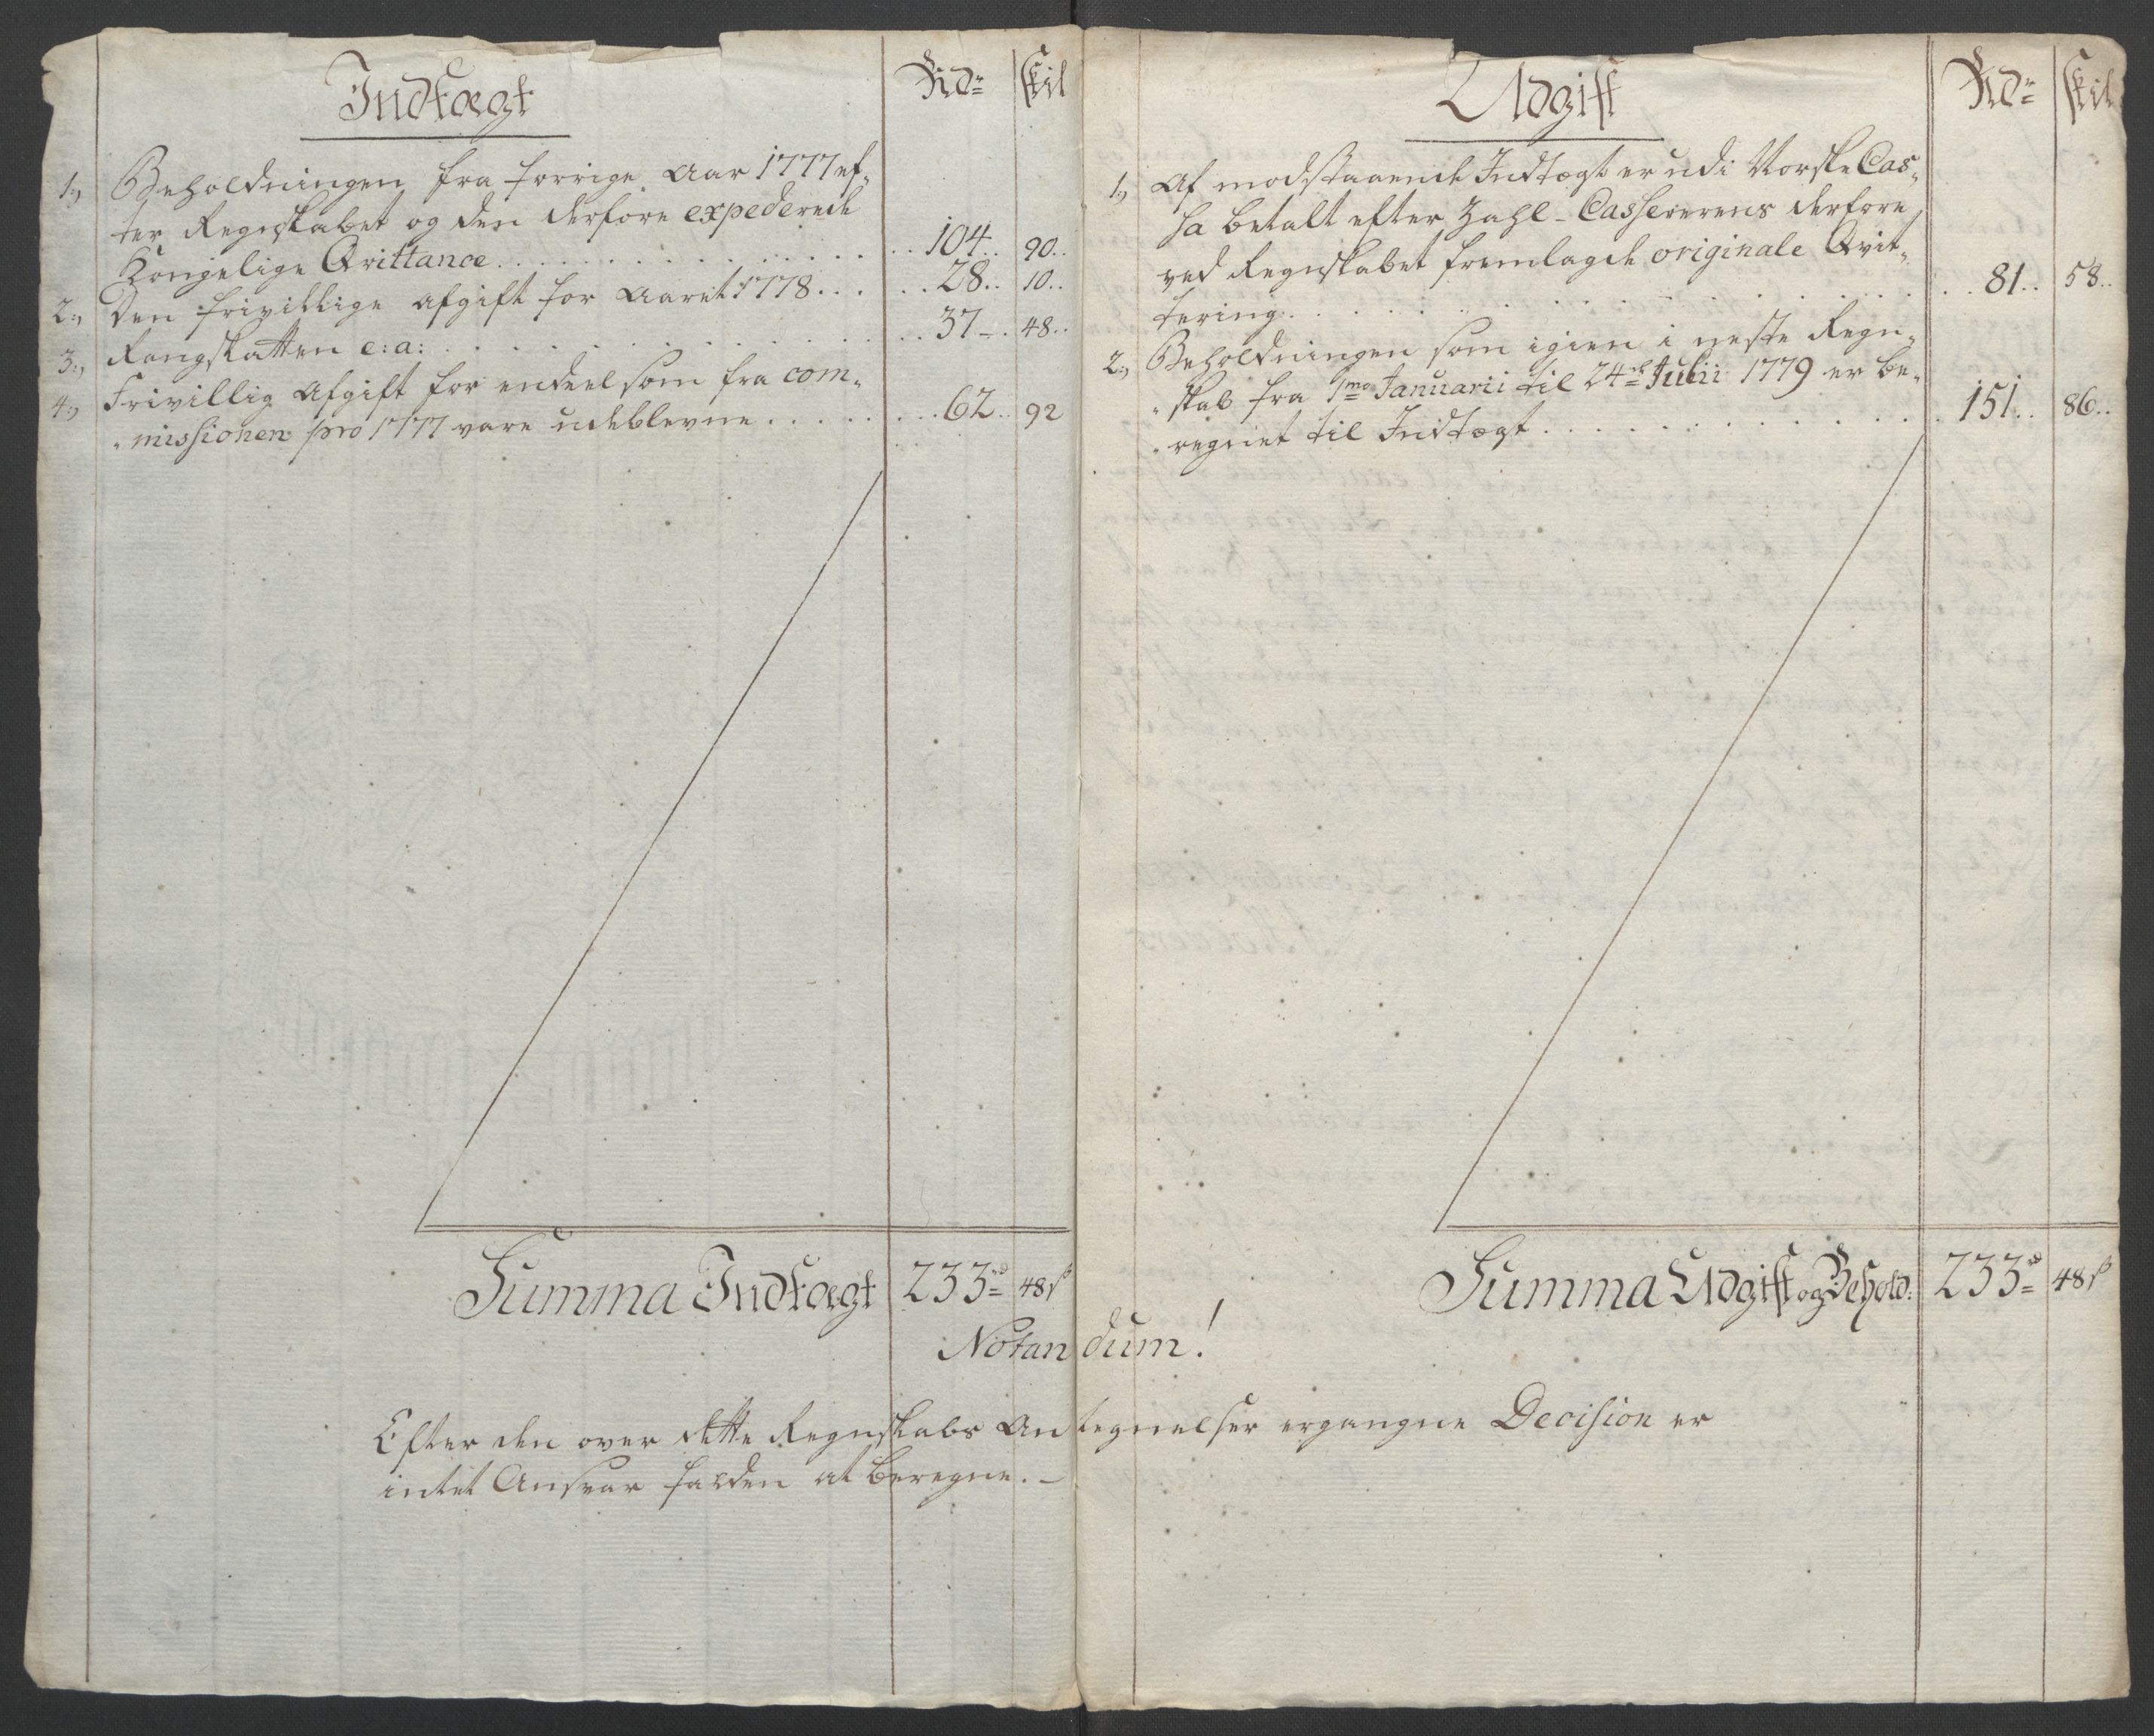 Indtægt
Rd.r
skil
1.) Beholdningen fra forrige Aar 1777 ef-
ter Regnskabet og den derfore expederede
Kongelige Qvittance . . . 104.. 90..
2.) Den frivillige Afgift for Aaret 1778 . . . 28.. 10..
3.) Rangskatten e: a: . . . 37 -. 48..
4.) Frivillig Afgift for endeel som fra com-
„missionen pro 1777 vare udeblevne . . . 62.. 92
Summa Indtægt 233 rd 48 s
Udgift
Rd.r
skil
1.) Af modstaaende Indtægt er udi Norske Cas-
sa betalt efter Zahl-Cassererens derfore
ved Regnskabet fremlagde originale Qvit-
tering . . . 81.. 58..
2.) Beholdningen som igien i neste Regn-
„skab fra 1mo Januarii til 24de Julii 1779 er be-
„regnet til Indtægt . . . 151.. 86..
Summa Udgift og Behold: 233 rd 48 s
Notandum!
Efter den over dette Regnskabs Antegnelser ergangne Decision er
intet Ansvar falden at beregne. -